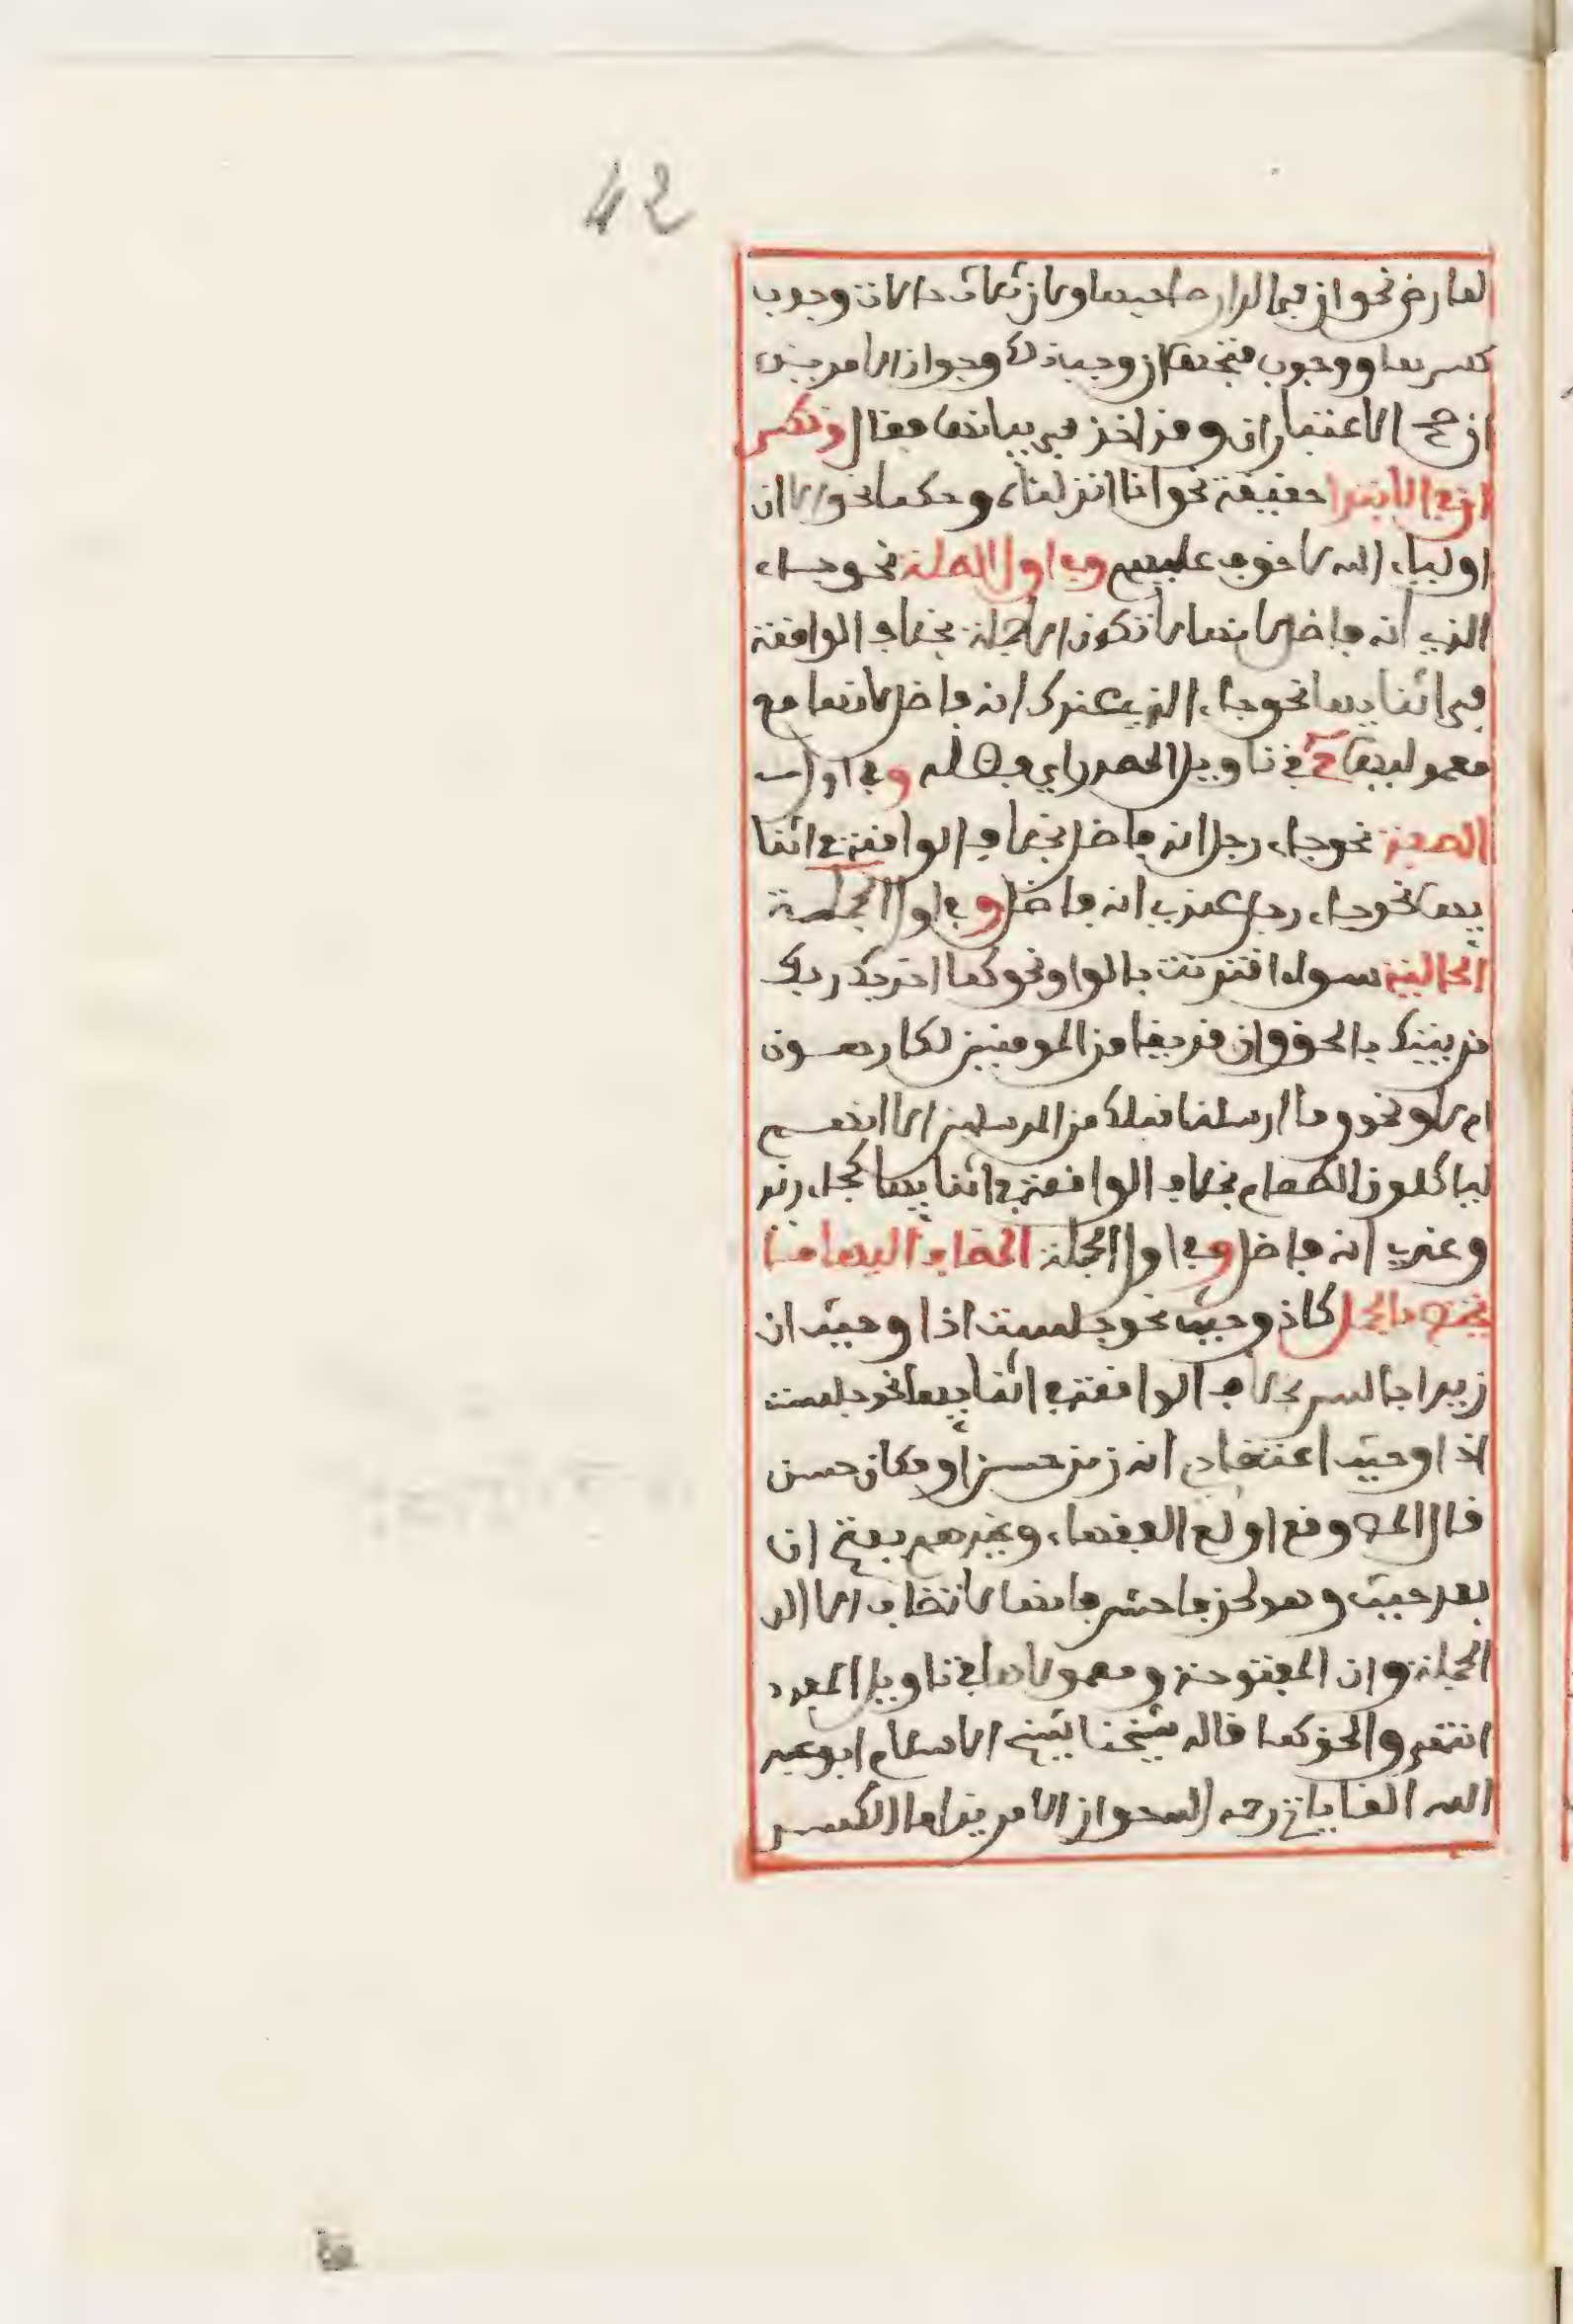 42
لعارض نحو ان في الدار صاحبها ولان ثلاث حالات وجوب
كسرها ووجوب فتحها ان وجب ذلك وجواز الامرين
ان صح الاعتباران وقد اخذ في بيانها فقال وتكسر
ان في الابتدا حقيقة نحو انا انزلناه وحكما نحو الا ان
اولياء الله لا خوف عليهم وفي اول الصلة نحو جاء
الذي انه فاضل لانها لا تكون الا جملة بخلاف الواقعة
في اثنايها نحو جاء الذي عندك انه فاضل لانها مع
معموليها في تاويل المصدر اي فضله وفي اول
الصفة نحو جاء رجل انه فاضل بخلاف الواقعة في اثنا
يها نحو جاء رجل عندي انه فاضل وفي اول الجملة
الحالية سواء اقترنت بالواو نحو كما اخرجك ربك
من بيتك بالحق وان فريقا من المومنين لكارهون
ام لا نحو وما ارسلنا قبلك من المرسلين الا انهم
لياكلون الطعام بخلاف الواقعة في اثنايها كجاء زيد
وعندي انه فاضل وفي اول الجملة المضاف اليها ما
يختص بالجمل كاذ وحيث نحو جلست اذ او حيث ان
زيدا جالس بخلاف الواقعة في اثنايها نحو جلست
اذ او حيث اعتقادي انه زمن حسن او مكان حسن
قال المص وقع اولع الفقهاء وغيرهم بفتح ان
بعد حيث وهو لحن فاحش فانها لا تضاف الا الى
الجملة وان المفتوحة ومعمولاها في تاويل المفرد
انتهى والحق كما قاله شيخنا شيخ الاسلام ابو عبد
الله القاياتي رحمه الله جواز الامرين اما الكسر